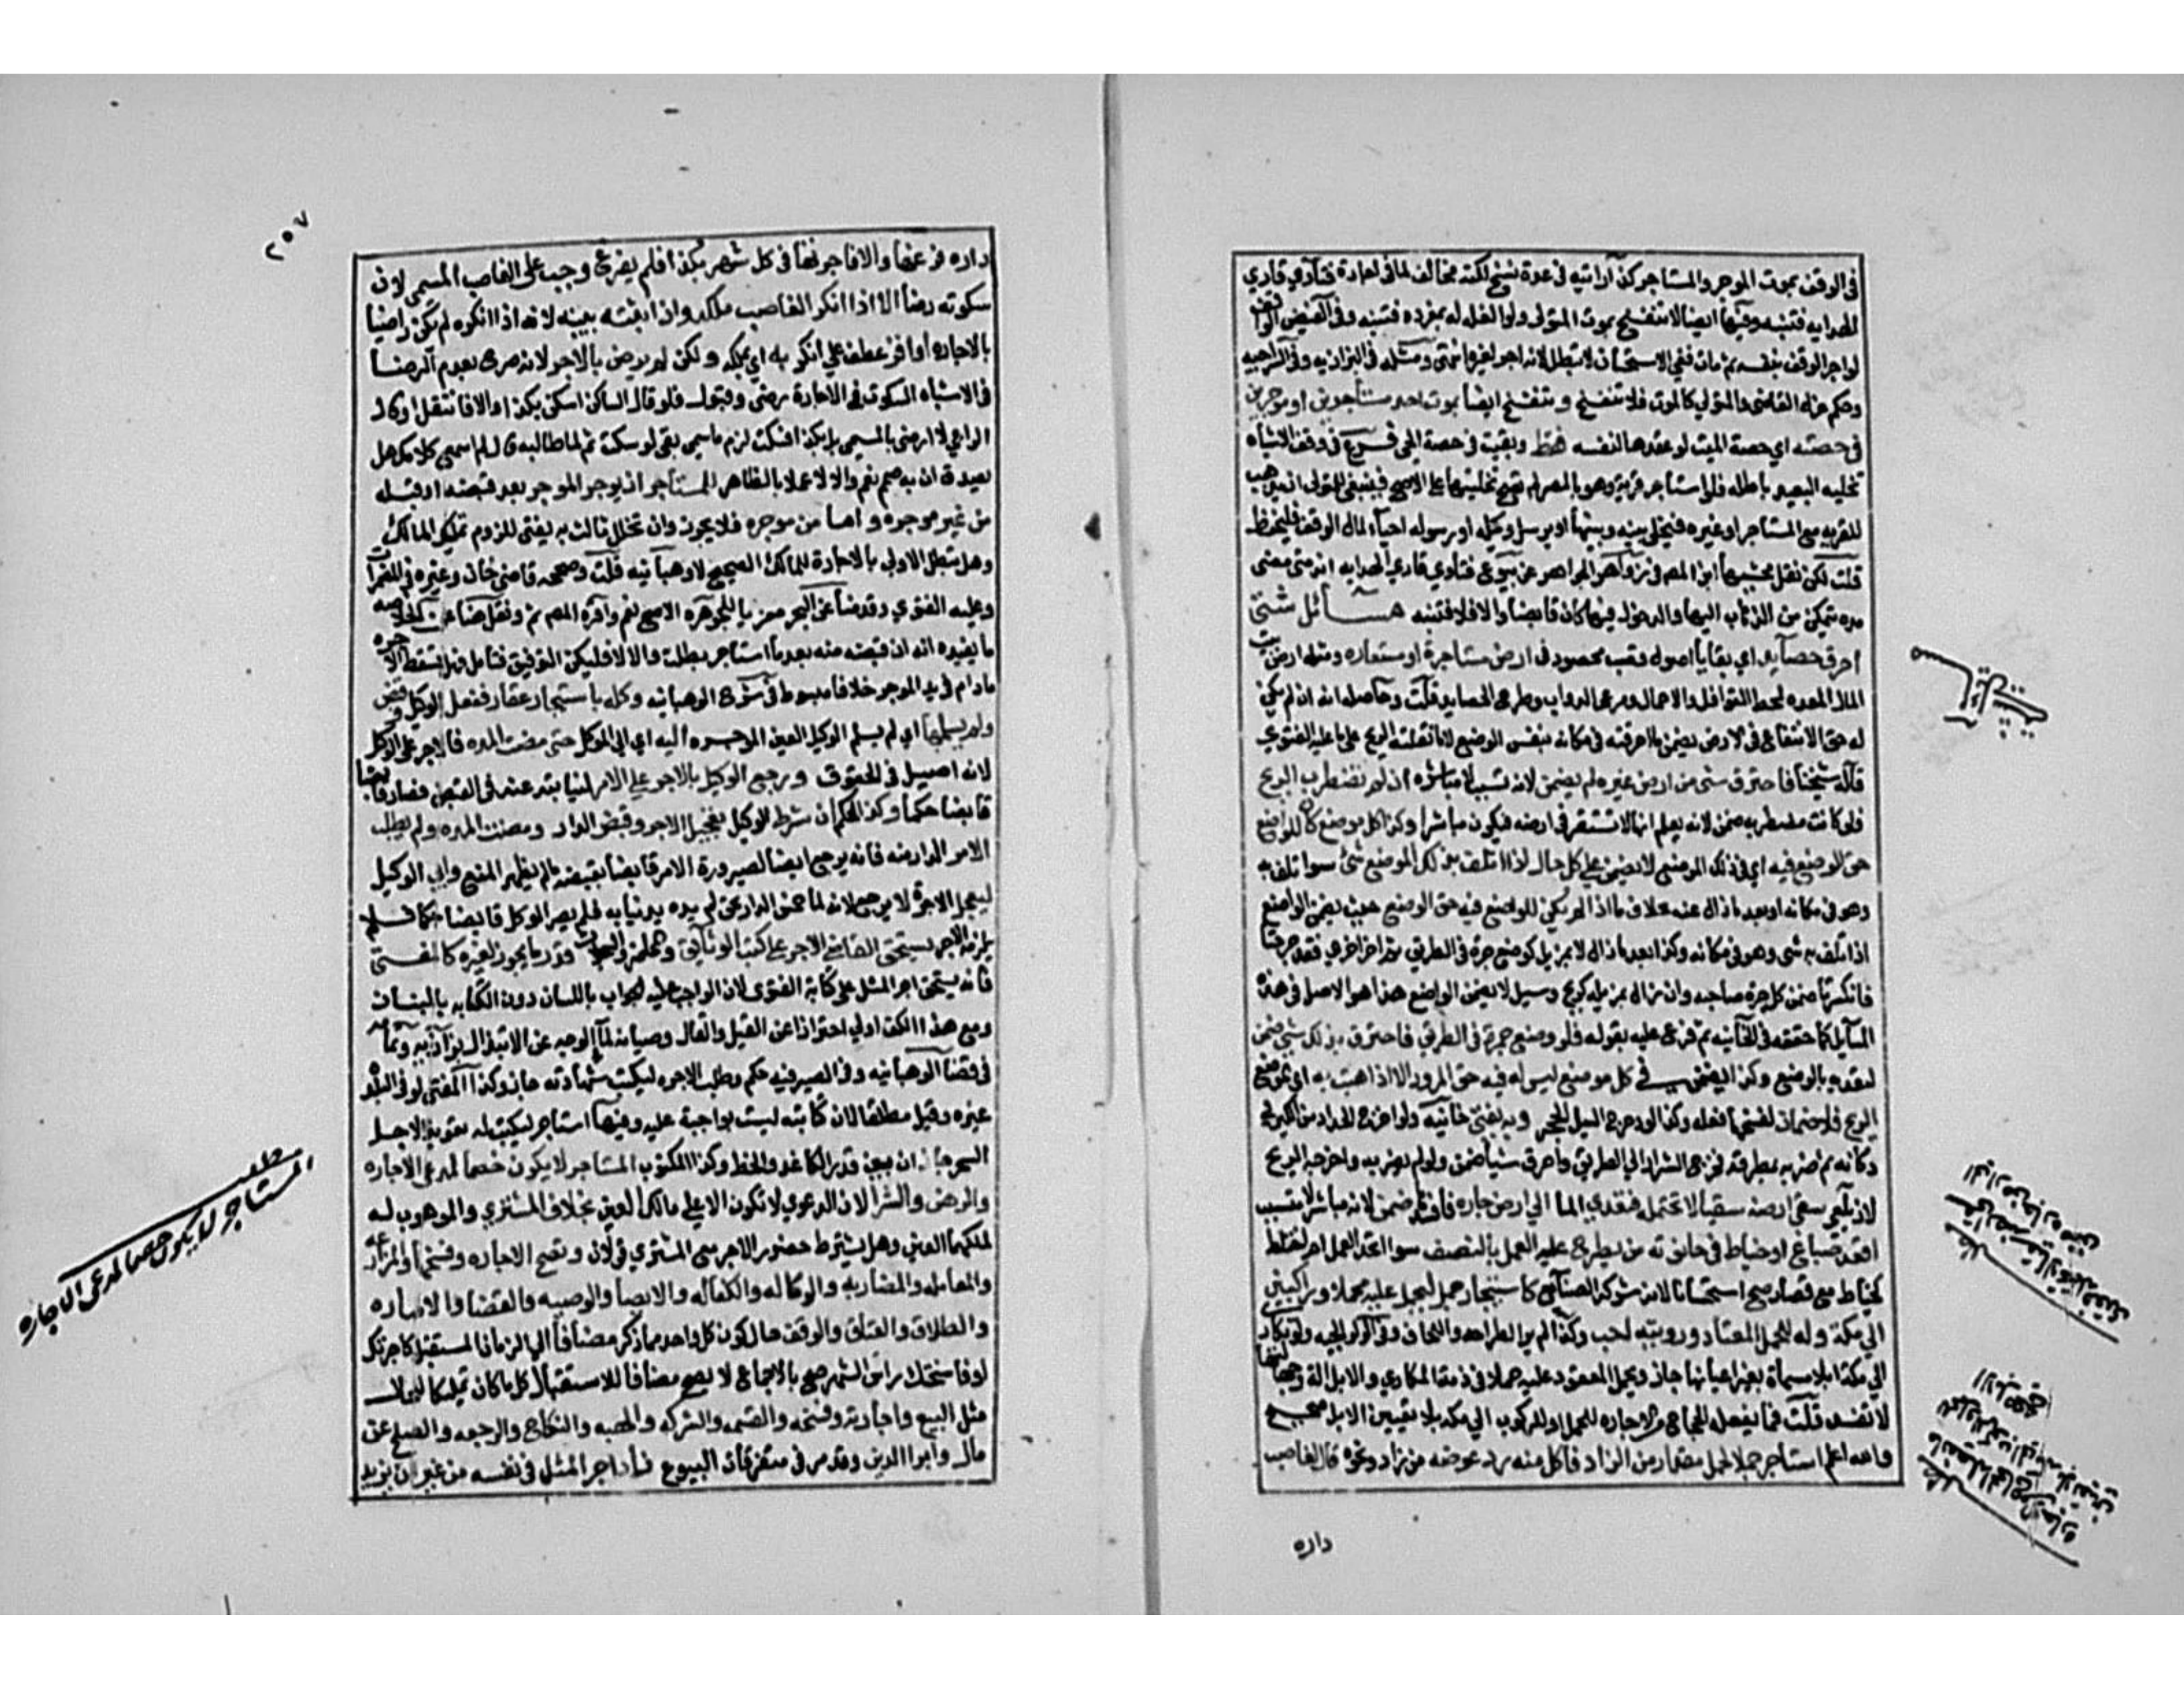 في الوقف بموت الموجر والمستاجر كذا رايته في عدة نسخ لكنه مخالف لما في اجارة فتاوي قاري
الهدايه فتنبه وفيها ايضا لا تنفسخ بموت المتولي ولو الغلة له بمفرده فتنبه وفي الفيض الواقف
لو اجر الوقف بنفسه ثم مات ففي الاستحسان لا تبطل لانه اجر لغيره انتهى ومثله في البزازيه وفي السراجيه
وحكم عزل القاضي والمتولي كالموت فلا تنفسخ و تنفسخ ايضا بموت احد مستأجرين او موجرين
في حصته اي حصة الميت لو عقدها لنفسه فقط وبقيت في حصة الحي فرع في وقف الاشباه
تخليه البعيد باطله فلو استأجر قرية وهو بالمصر لم تصح تخليتها على الاصح فينبغي للمتولي ان يذهب
للقريه مع المستاجر او غيره فيخلى بينه وبينها او يرسل وكيله او رسوله احياء لمال الوقف فليحفظ
قلت لكن نقل محشيها ابن المصه في زواهر الجواهر عن بيوع فتاوي قاري الهدايه انه متى مضى
مده يتمكن من الذهاب اليها والدخول فيها كان قابضا والا فلا فتنبه مسائل شتى
احرق حصايد اي بقايا اصول قصب محصود في ارض مستاجرة او مستعاره ومثله ارض بيت
المال المعده لحط القوافل والاحمال ومرعى الدواب وطرح الحصايد قلت وحاصله انه ان لم يكن
له حق الانتفاع في الارض يضمن ما احرقته في مكانه بنفس الوضع لا ما نقلته الريح على ما عليه الفتوي
قاله شيخنا فاحترق شي من ارض غيره لم يضمن لانه تسبب لا مباشره ان لم تضطرب الريح
فلو كانت مضطربه ضمن لانه يعلم انها لا تستقر في ارضه فيكون مباشرا وكذا كل موضع كان للواضع
حق الوضع فيه اي في ذلك الموضع لا يضمن على كل حال اذا اتلف بذلك الموضع شئ سوا تلف به
وهو في مكانه او بعد ما زال عنه بخلاف ما اذا لم يكن للواضع فيه حق الوضع حيث يضمن الواضع
اذا تلف به شي وهو في مكانه وكذا بعد ما زال لا بمزيل كوضع جرة في الطريق ثم اخر اخري فتدحرجتا
فانكسرتا ضمن كل جرة صاحبه وان زال بمزيل كريح وسيل لا يضمن الواضع هذا هو الاصل في هذه
المسايل كما حققه في الخانيه ثم فرع عليه بقوله فلو وضع جمرة في الطريق فاحترق بذلك شي ضمن
لتعديه بالوضع وكذا يضمن في كل موضع ليس له فيه حق المرور الا اذا ذهبت به اي بموضع
الريح فلا ضمان لنسخها فعله وكذا لو دحرج السيل الحجر وبه يفتى خانيه ولو اخرج الحداد من الكير في
دكانه ثم ضربه بمطرقة فخرج الشرار الى الطريق واحرق شيا ضمن ولو لم يضربه واخرجه الريح
لا زيلعي سقى ارضه سقيا لا تحتمله فتعدي الما الى ارض جاره فافسدها ضمن لانه مباشر لا متسبب
اقعد صباغ او خياط في حانوته من يطرح عليه العمل بالنصف سوا اتحد العمل ام اختلف
كخياط مع قصار صح استحسانا لانه شركة الصنائع كاستيجار جمل ليحمل عليه محملا وراكبين
الى مكة وله المحمل المعتاد ورويته احب وكذا الم ير الطراحه واللحاف وفي الولوالجيه ولو تكاري
الى مكة ابلا مسماة بغير اعيانها جاز ويحمل المعقود عليه حملا في ذمة المكاري والابل الة وجهالتها
لا تفسد قلت فما يفعله الحجاج من الاجاره للحمل او للركوب الى مكه بلا تعيين الابل صحيح
والله اعلم استاجر جملا لحمل مقدار من الزاد فاكل منه رد عوضه من زاد ونحوه قال لغاصب
داره
٢٥٧
داره فرغها والا فاجرتها في كل شهر بكذا فلم يفرغ وجب على الغاصب المسمى لان
سكوته رضا الا اذا انكر الغاصب ملكه وان اثبته ببينه لانه اذا انكره لم يكن راضيا
بالاجاره او اقر عطف على انكر به اي بملكه ولكن لم يرض بالاجر لانه صرح بعدم الرضا
في الاشباه السكوت في الاجارة رضى وقبول فلو قال للساكن اسكن بكذا والا فانتقل او قال
الراعي لا ارضى بالمسمى بل بكذا فسكت لزم ما سمى بقى لو سكت ثم لما طالبه قال لم اسمع كلامك هل
يصدق ان به صمم نعم والا لا عملا بالظاهر للمستأجر ان يوجر الموجر بعد قبضه او قبله
من غير موجره واما من موجره فلا يجوز وان تخلل ثالث به يفتى للزوم تمليك المالك
وهل تبطل الاولى بالاجارة للمالك الصحيح لا وهبانيه قلت وصححه قاضي خان وغيره وفي المضمرات
وعليه الفتوي وقدمنا عن البحر معزيا للجوهره الاصح نعم واقره المصه ثم ونقل هنا عن الخلاصه
ما يفيده انه ان قبضه منه بعد ما استاجر بطلت والا لا فليكن التوفيق فتامل وهل تسقط الاجره
مادام في يد الموجر خلاف مبسوط في شرح الوهبانيه وكله باستيجار عقار ففعل الوكيل وقبض
ولم يسلمها اي لم يسلم الوكيل العين الموجره اليه اي الى الموكل حتى مضت المده فالاجر على الوكيل
لانه اصيل في الحقوق ورجع الوكيل بالاجر على الامر لنيابته عنه في القبض فصار قابضا
قابضا حكما وكذا الحكم ان شرط الوكيل تعجيل الاجر وقبض الدار ومضت المده ولم يطلب
الامر الدار منه فانه يرجع ايضا لصيرورة الامر قابضا بقبضه ما لم يظهر المنع وابى الوكيل
ليعجل الاجرة لا يرجع لانه لما حبس الدار بحق لم يده يد نيابه فلم يصر الموكل قابضا حكما فلم
يلزمه الاجر يستحق القاضي الاجر على كتب الوثايق والمحاضر والسجلات قدر ما يجوز لغيره كالمفتي
فانه يستحق اجر المثل على كتابة الفتوى لان الواجب عليه الجواب باللسان دون الكتابه بالبنان
ومع هذا الكف اولى احترازا عن القيل والقال وصيانة لما الوجه عن الابتذال بزازيه وتمامه
في قضا الوهبانيه وفي الصيرفيه حكم وطلب الاجره ليكتب شهادته جاز وكذا المفتي لو في البلد
غيره وقيل مطلقا لان كتابته ليست بواجبة عليه وفيها استاجر ليكتب له تعويذا لاجل
السحر جاز ان بين قدر الكاغد والخط وكذا المكتوب المستاجر لا يكون خصما لمدعي الاجاره
والرهن والشرا لان الدعوي لا تكون الا على مالك العين بخلاف المشتري والموهوب له
لملكهما العين وهل يشترط حضور الاجر مع المشتري قولان وتصح الاجاره وفسخها والمزارعه
والمعامله والمضاربه والوكاله والكفاله والايصا والوصيه والقضا والاماره
والطلاق والعتاق والوقف حال كون كل واحد مما ذكر مضافا الى الزمان المستقبل كاجرتك
او فاسختك راس الشهر صح بالاجماع لا يصح مضافا للاستقبال كل ما كان تمليكا للحال
مثل البيع واجازته وفسخه والقسمه والشركه والهبه والنكاح والرجعه والصلح عن
مال وابرا الدين وقد مر في متفرقات البيوع زاد اجر المثل في نفسه من غير ان يزيد
مطلب
المستاجر لا يكون خصما لمدعي الاجاره